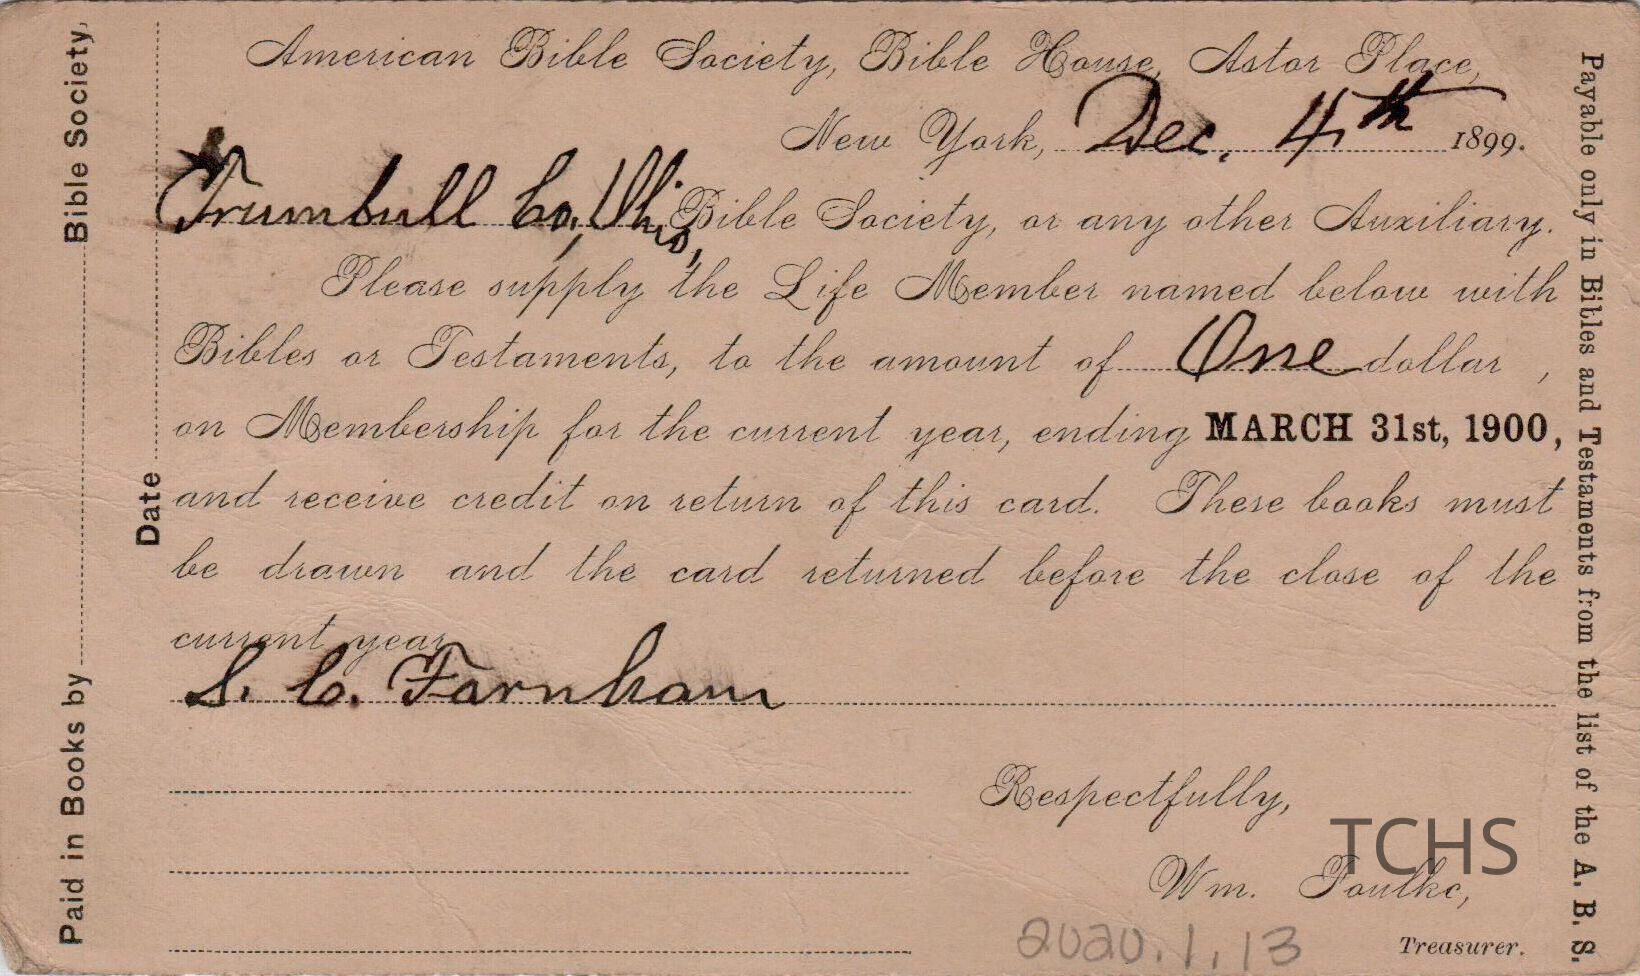 American Bible Society, Bible House, Astor Place,
New York, Dec. 4th 1899.
Trumbull Co., Ohio, Bible Society, or any other Auxiliary.
Please supply the Life Member named below with
Bibles or Testaments, to the amount of One dollar ,
on Membership for the current year, ending MARCH 31st, 1900,
and receive credit on return of this card. These books must
be drawn and the card returned before the close of the
current year.
S. C. Farnham
Respectfully,
Wm. Foulke,
Treasurer.
Paid in Books by Bible Society,
Date
Payable only in Bibles and Testaments from the list of the A. B. S.
TCHS
2020.1.13